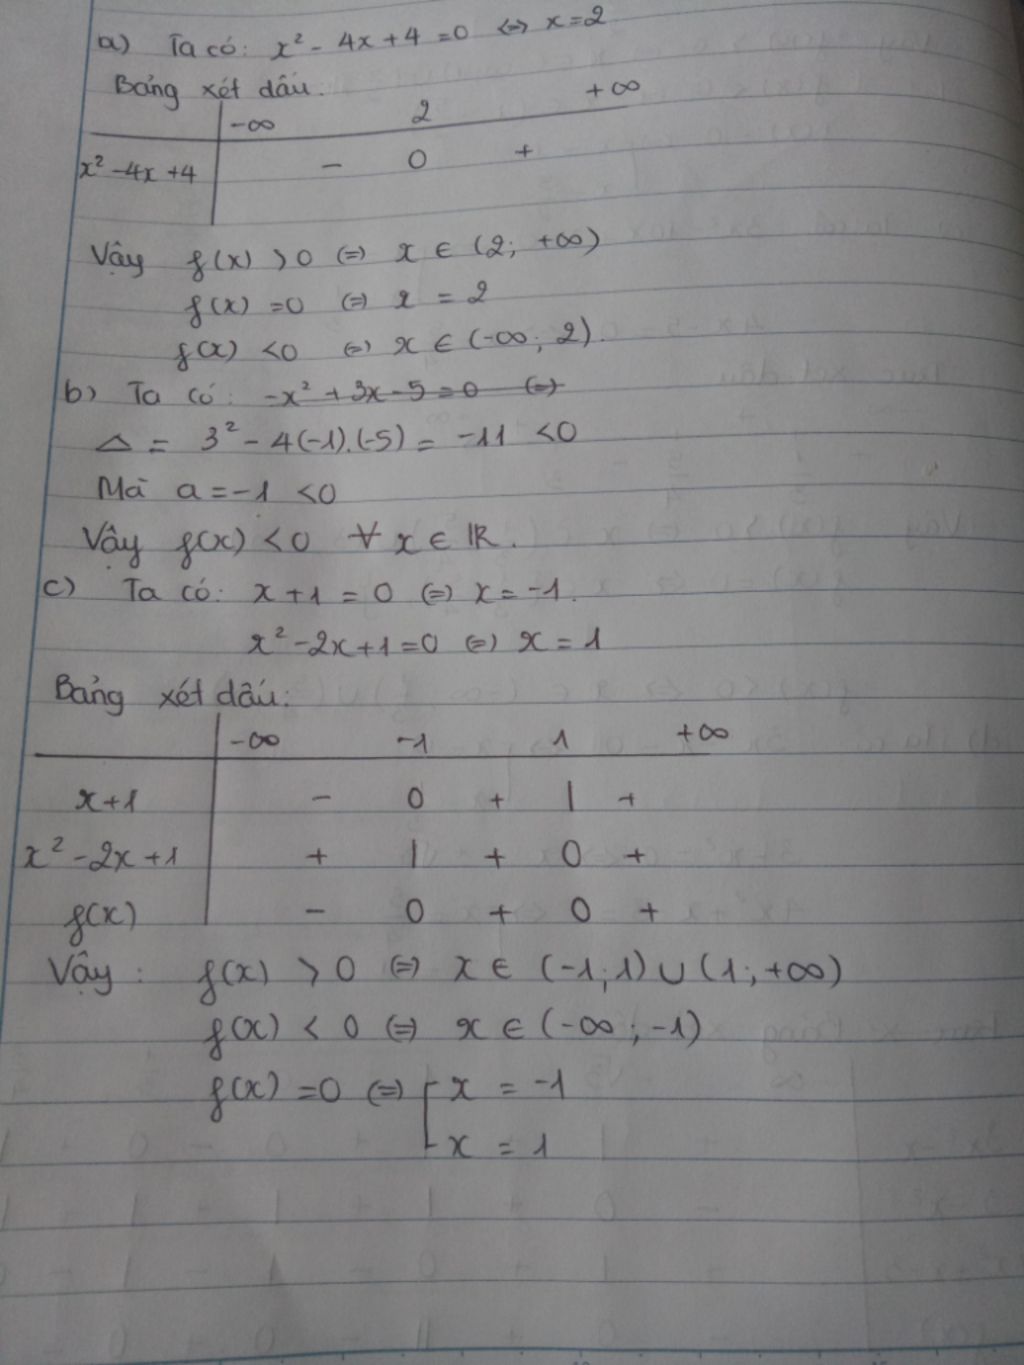 a) Ta có: x² - 4x + 4 = 0 ⇔ x = 2
Bảng xét dấu:
-∞ 2 +∞
x² - 4x + 4 - 0 +
Vậy f(x) > 0 ⇔ x ∈ (2; +∞)
f(x) = 0 ⇔ x = 2
f(x) < 0 ⇔ x ∈ (-∞; 2).
b) Ta có: -x² + 3x - 5 = 0 ⇔
Δ = 3² - 4(-1).(-5) = -11 < 0
Mà a = -1 < 0
Vậy f(x) < 0 ∀ x ∈ ℝ.
c) Ta có: x + 1 = 0 ⇔ x = -1.
x² - 2x + 1 = 0 ⇔ x = 1
Bảng xét dấu:
-∞ -1 1 +∞
x + 1 - 0 + | +
x² - 2x + 1 + | + 0 +
f(x) - 0 + 0 +
Vậy: f(x) > 0 ⇔ x ∈ (-1; 1) ∪ (1; +∞)
f(x) < 0 ⇔ x ∈ (-∞; -1)
f(x) = 0 ⇔ [ x = -1
x = 1